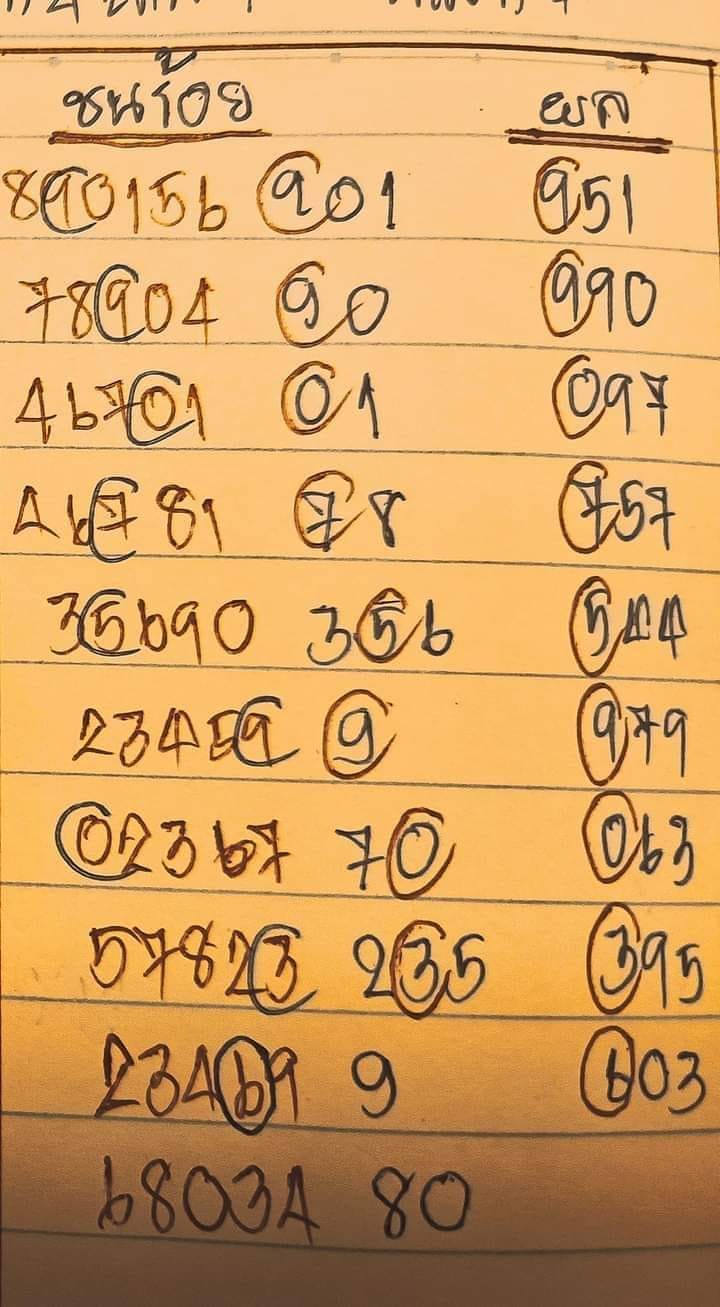 ชนร้อย ผล
890156 901 951
78904 90 990
46701 01 097
46781 78 757
35690 356 544
23459 9 979
02367 70 063
57823 235 395
23469 9 603
68034 80